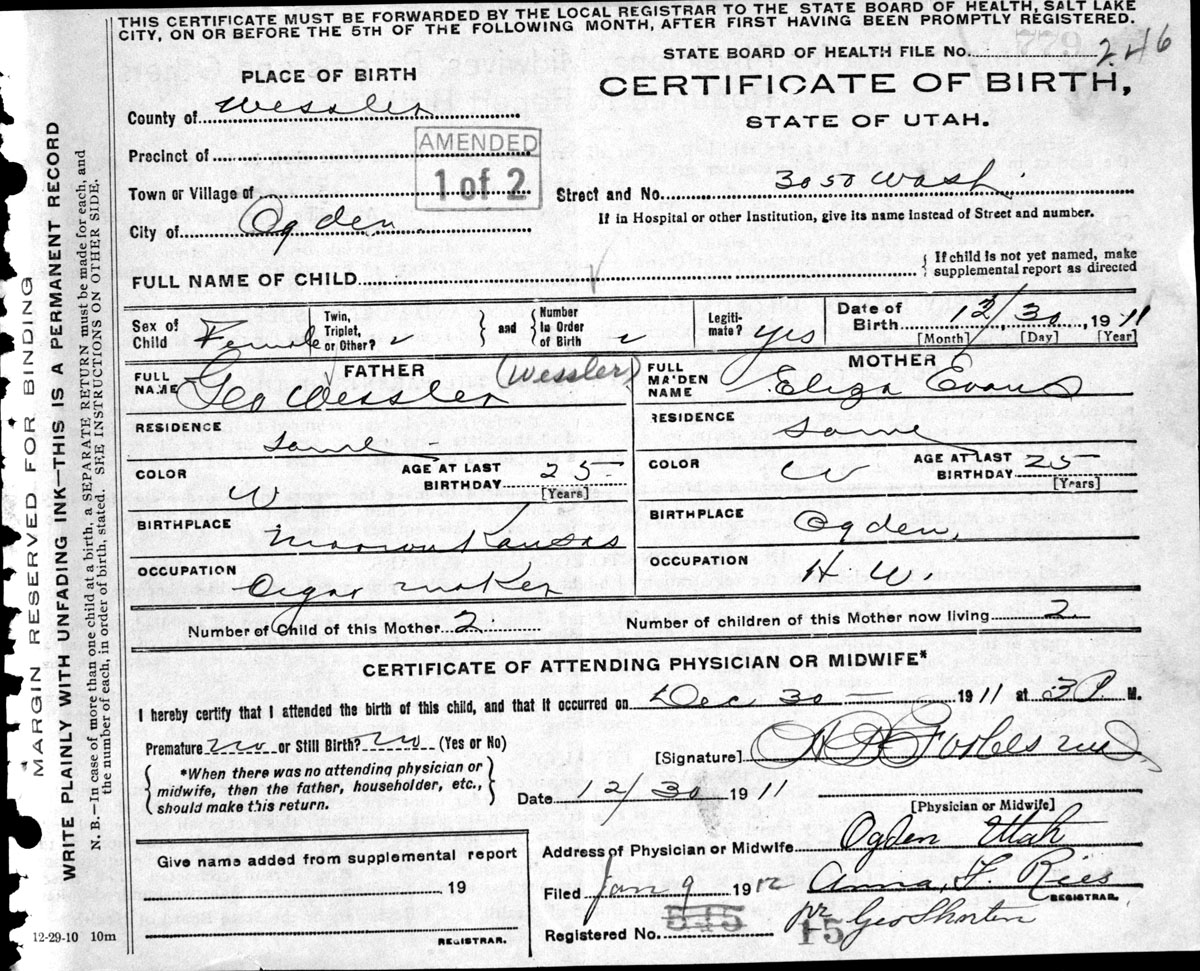 THIS CERTIFICATE MUST BE FORWARDED BY THE LOCAL REGISTRAR TO THE STATE BOARD OF HEALTH, SALT LAKE
CITY, ON OR BEFORE THE 5TH OF THE FOLLOWING MONTH, AFTER FIRST HAVING BEEN PROMPTLY REGISTERED.
STATE BOARD OF HEALTH FILE No. 246
PLACE OF BIRTH
CERTIFICATE OF BIRTH,
STATE OF UTAH.
County of Wessler
Precinct of
AMENDED
1 of 2
Town or Village of
Street and No. 3050 Wash.
City of Ogden
If in Hospital or other Institution, give its name instead of Street and number.
FULL NAME OF CHILD
If child is not yet named, make
supplemental report as directed
Sex of Child Female
Twin, Triplet, or Other?
and
Number In Order of Birth
Legiti-mate? yes
Date of Birth 12/30, 1911
[Month] [Day] [Year]
FATHER
FULL NAME Geo Wessler (Wessler)
MOTHER
FULL MAIDEN NAME Eliza Evans
RESIDENCE same
RESIDENCE same
COLOR W
AGE AT LAST BIRTHDAY 25
[Years]
COLOR W
AGE AT LAST BIRTHDAY 25
[Years]
BIRTHPLACE Marion Kansas
BIRTHPLACE Ogden,
OCCUPATION Cigar maker
OCCUPATION H. W.
Number of Child of this Mother 2
Number of children of this Mother now living 2
CERTIFICATE OF ATTENDING PHYSICIAN OR MIDWIFE*
I hereby certify that I attended the birth of this child, and that it occurred on Dec 30 1911 at 3 P M.
Premature no or Still Birth? no (Yes or No)
[Signature] Forbes md
*When there was no attending physician or
midwife, then the father, householder, etc.,
should make this return.
Date 12/30 1911
[Physician or Midwife]
Address of Physician or Midwife Ogden Utah
Give name added from supplemental report
19
REGISTRAR.
Filed Jan 9 1912 Anna F. Rees
REGISTRAR.
pr Geo Shorten
Registered No. 545 15
12-29-10 10m
MARGIN RESERVED FOR BINDING
WRITE PLAINLY WITH UNFADING INK—THIS IS A PERMANENT RECORD
N. B.—In case of more than one child at a birth, a SEPARATE RETURN must be made for each, and
the number of each, in order of birth, stated. SEE INSTRUCTIONS ON OTHER SIDE.